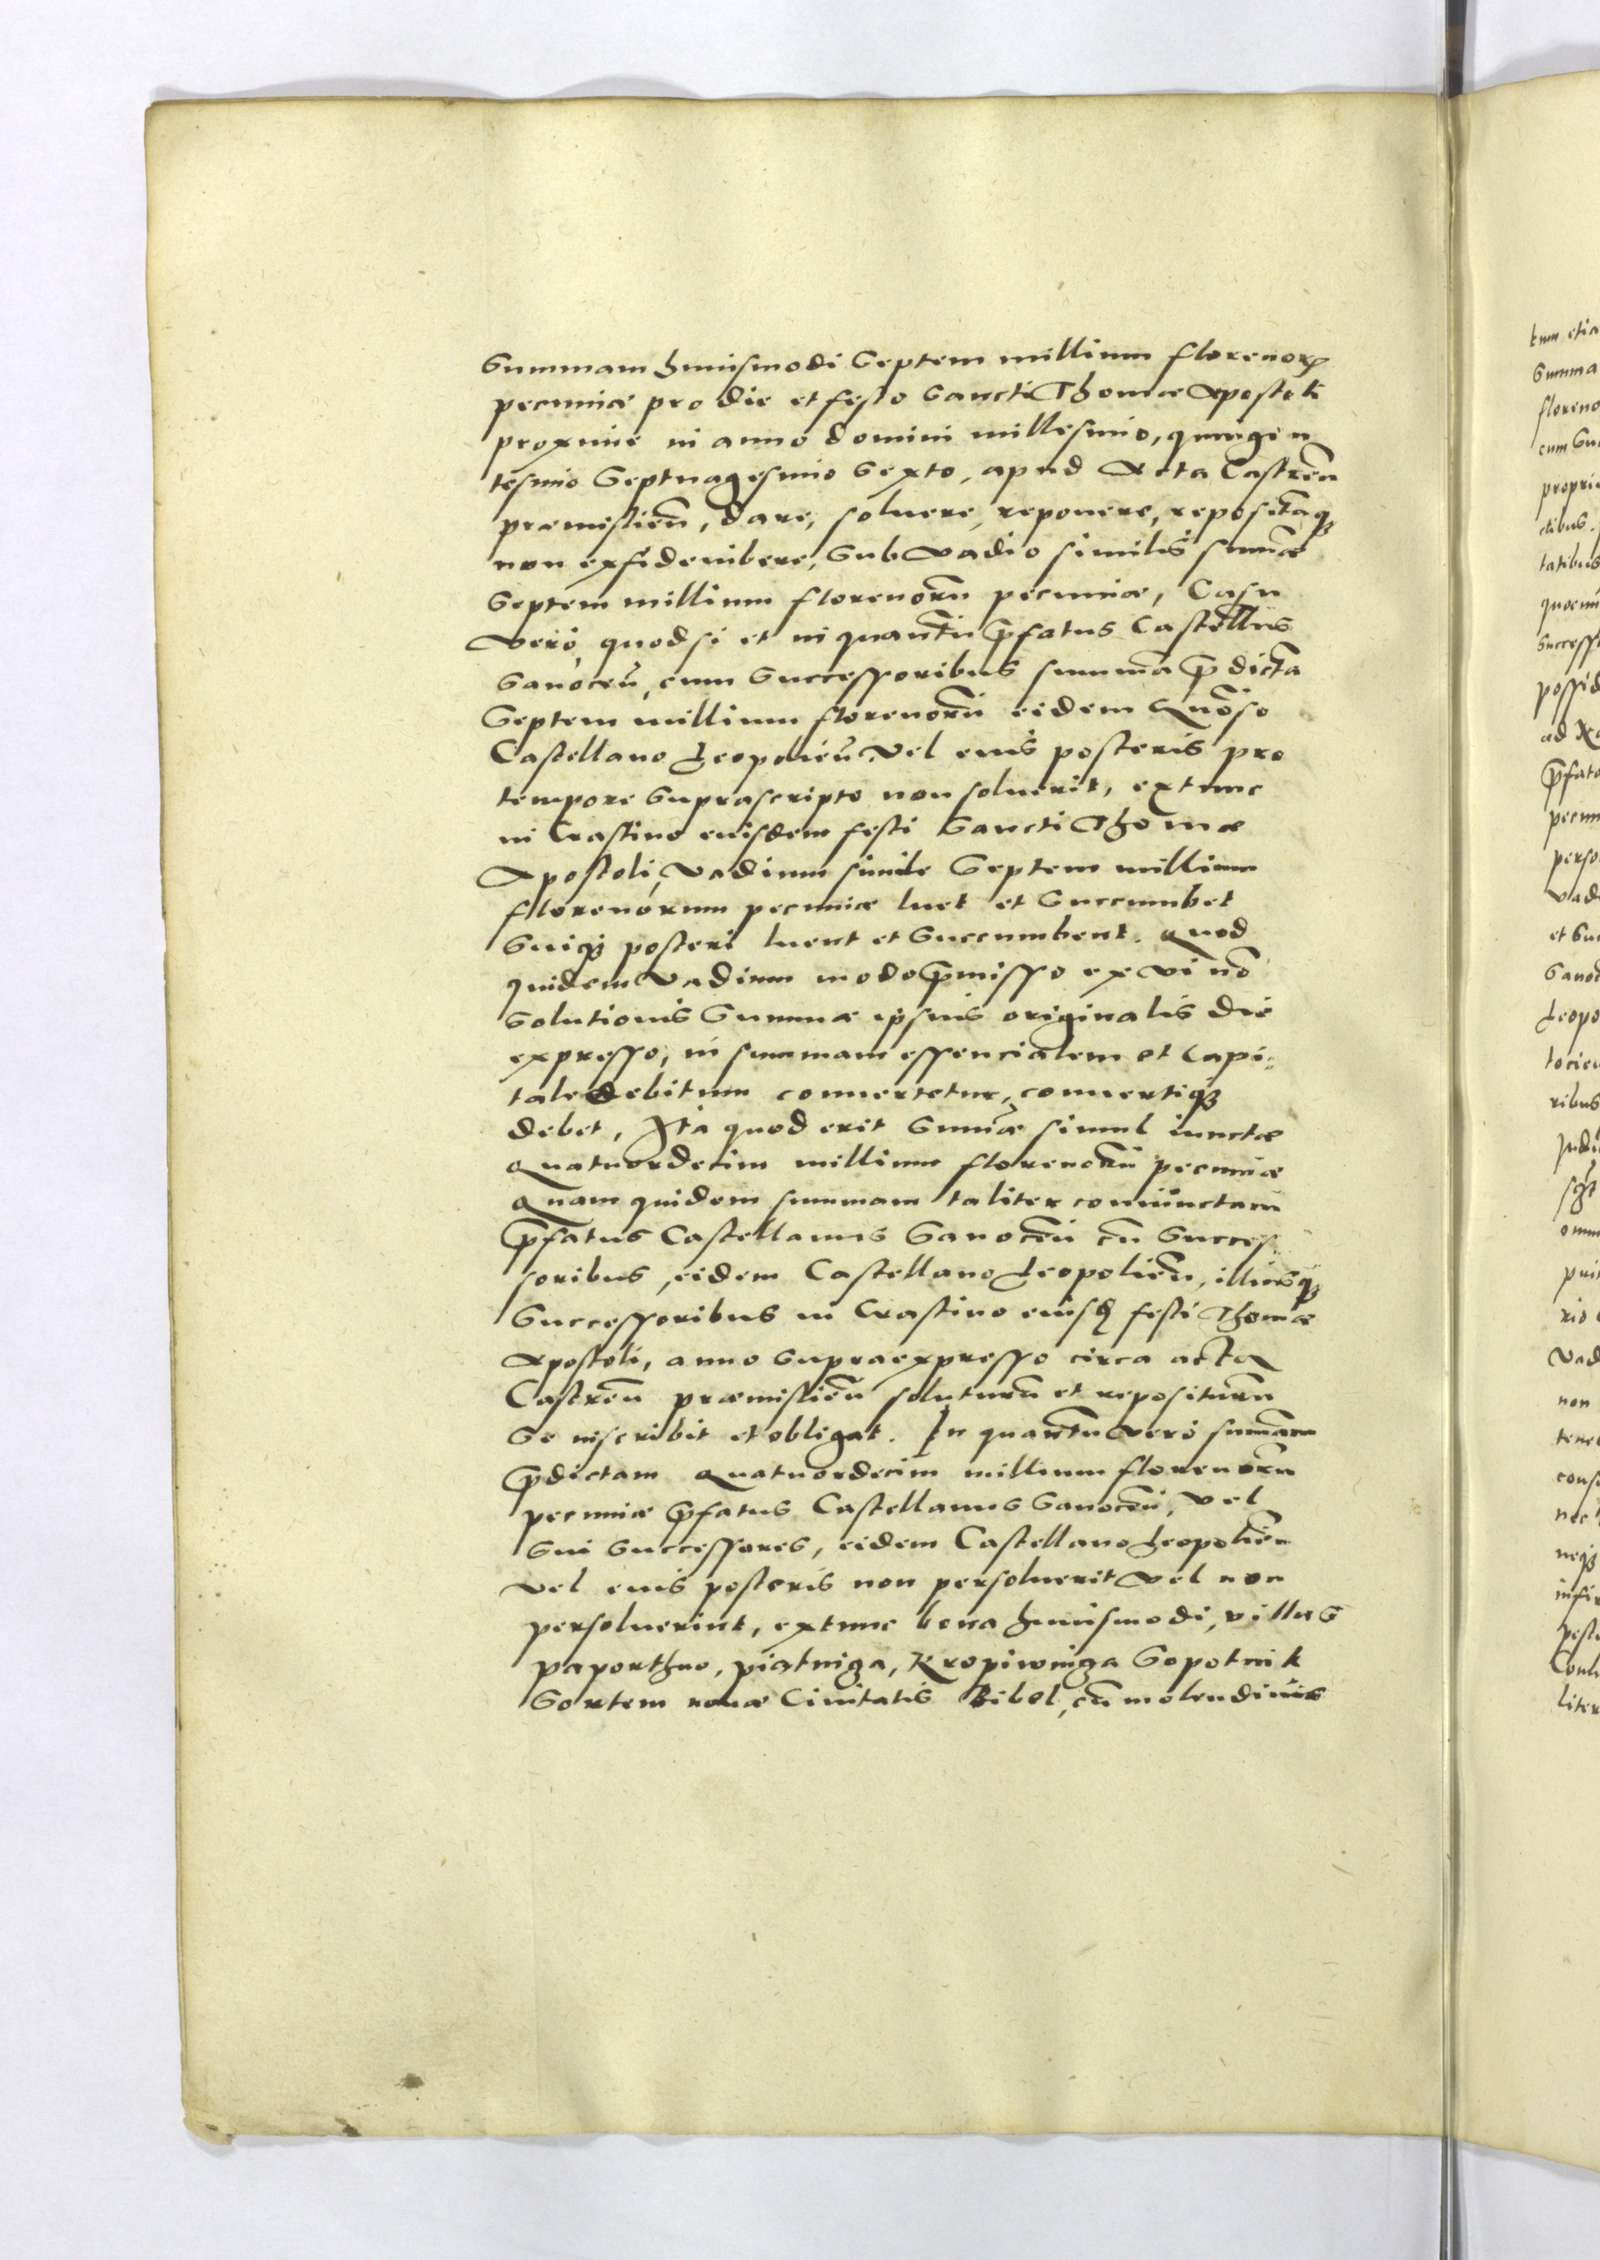 Summam huiusmodi Septem millium florenorꝝ
pecuniæ pro die et festo Sancti Thomæ Apostoli
proxime in anno domini millesimo, quingen
tesimo Septuagesimo Sexto, apud Acta Castreñ
præmislieñ, dare, soluere, reponere, repositaqꝫ
non exfidemibere, Sub Vadio similis summæ
Septem millium florenorũ pecuniæ, Casu
Vero, quod si et in quantũ p̃fatus Castellũs
Sanoceñ, cum Successoribus summã p̃dictã
Septem millium florenorũ eidem Gnõso
Castellano Leopolieñ Vel eius posteris pro
tempore Suprascripto non soluerit, extunc
in Crastino eiusdem festi Sancti Thomæ
Apostoli, Vadium simile Septem millium
florenorum pecuniæ luet et Succumbet
Suiqꝫ posteri luent et Succumbent. Quod
quidem Vadium modo p̃misso ex Vi nõ
Solutionis Summæ ipsius originalis die
expresso, in summam essencialem et Capi:
tale debitum conuertetur, conuertiqꝫ
debet, Ita quod erit Sum̃æ simul iunctæ
Quatuordecim millium florenorũ pecuniæ
Quam quidem summam taliter coniunctam
p̃fatus Castellanus Sanoceñ cũ Succes
soribus, eidem Castellano Leopolieñ, illiusqꝫ
Successoribus in Crastino eiusd festi Thomæ
Apostoli, anno Supraexpresso circa acta
Castreñ præmislieñ soluturũ et repositurũ
Se inscribit et obligat. In quantũ Vero summam
p̃dictam Quatuordecim millium florenorũ
pecuniæ p̃fatus Castellanus Sanoceñ, Vel
Sui Successores, eidem Castellano Leopolieñ
Vel eius posteris non persoluerit Vel non
persoluerint, extunc bona huiusmodi, villas
Paporthno, piątniga, Kropiwniga Sopotnik
Sortem nouæ Ciuitatis Bibel, cũ molendinis